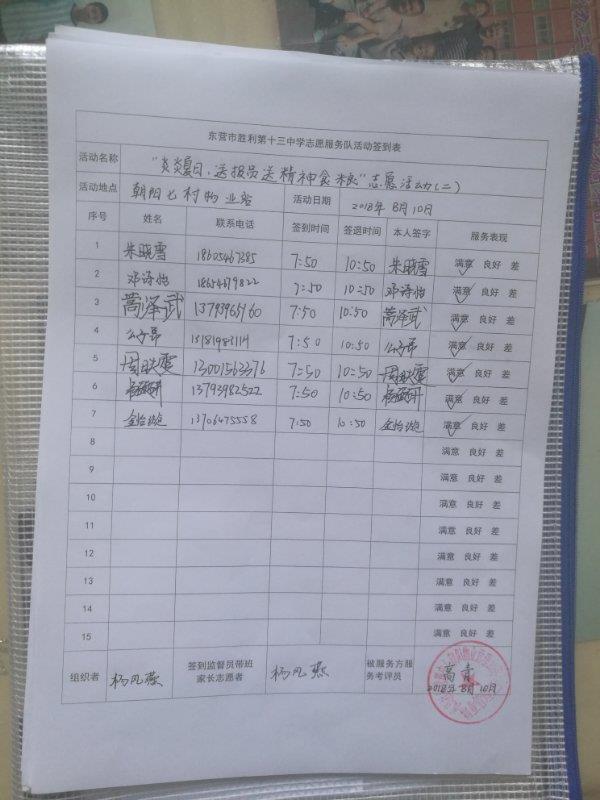 东营市胜利第十三中学志愿服务队活动签到表
活动名称 "炎炎夏日,送报员送精神食粮"志愿活动(二)
活动地点 朝阳七村物业站 活动日期 2018年8月10日
序号 姓名 联系电话 签到时间 签退时间 本人签字 服务表现
1 朱晓雪 18605467385 7:50 10:50 朱晓雪 满意 良好 差
2 邓诗怡 7:50 10:50 邓诗怡 满意 良好 差
3 蒿泽武 13793965760 7:50 10:50 蒿泽武 满意 良好 差
4 7:50 10:50 满意 良好 差
5 13001563376 7:50 10:50 满意 良好 差
6 13793982522 7:50 10:50 满意 良好 差
7 13706475558 7:50 10:50 满意 良好 差
8 满意 良好 差
9 满意 良好 差
10 满意 良好 差
11 满意 良好 差
12 满意 良好 差
13 满意 良好 差
14 满意 良好 差
15 满意 良好 差
组织者 杨凡燕 签到监督员带班家长志愿者 杨凡燕 被服务方服务考评员 高青
2018年8月10日